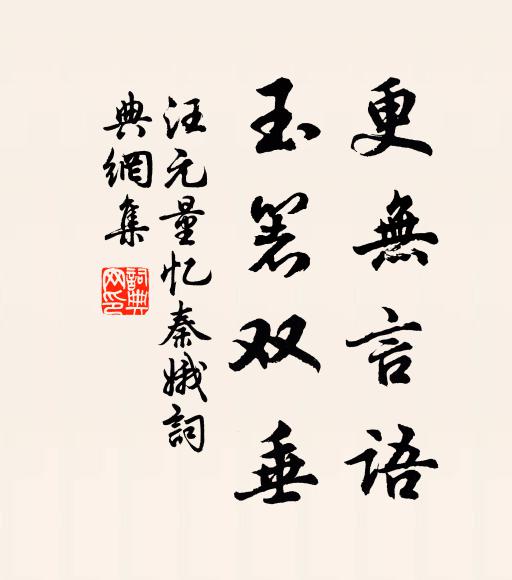 更無言語
玉箸双垂
汪元量忆秦娥詞
典網集
詞典網印